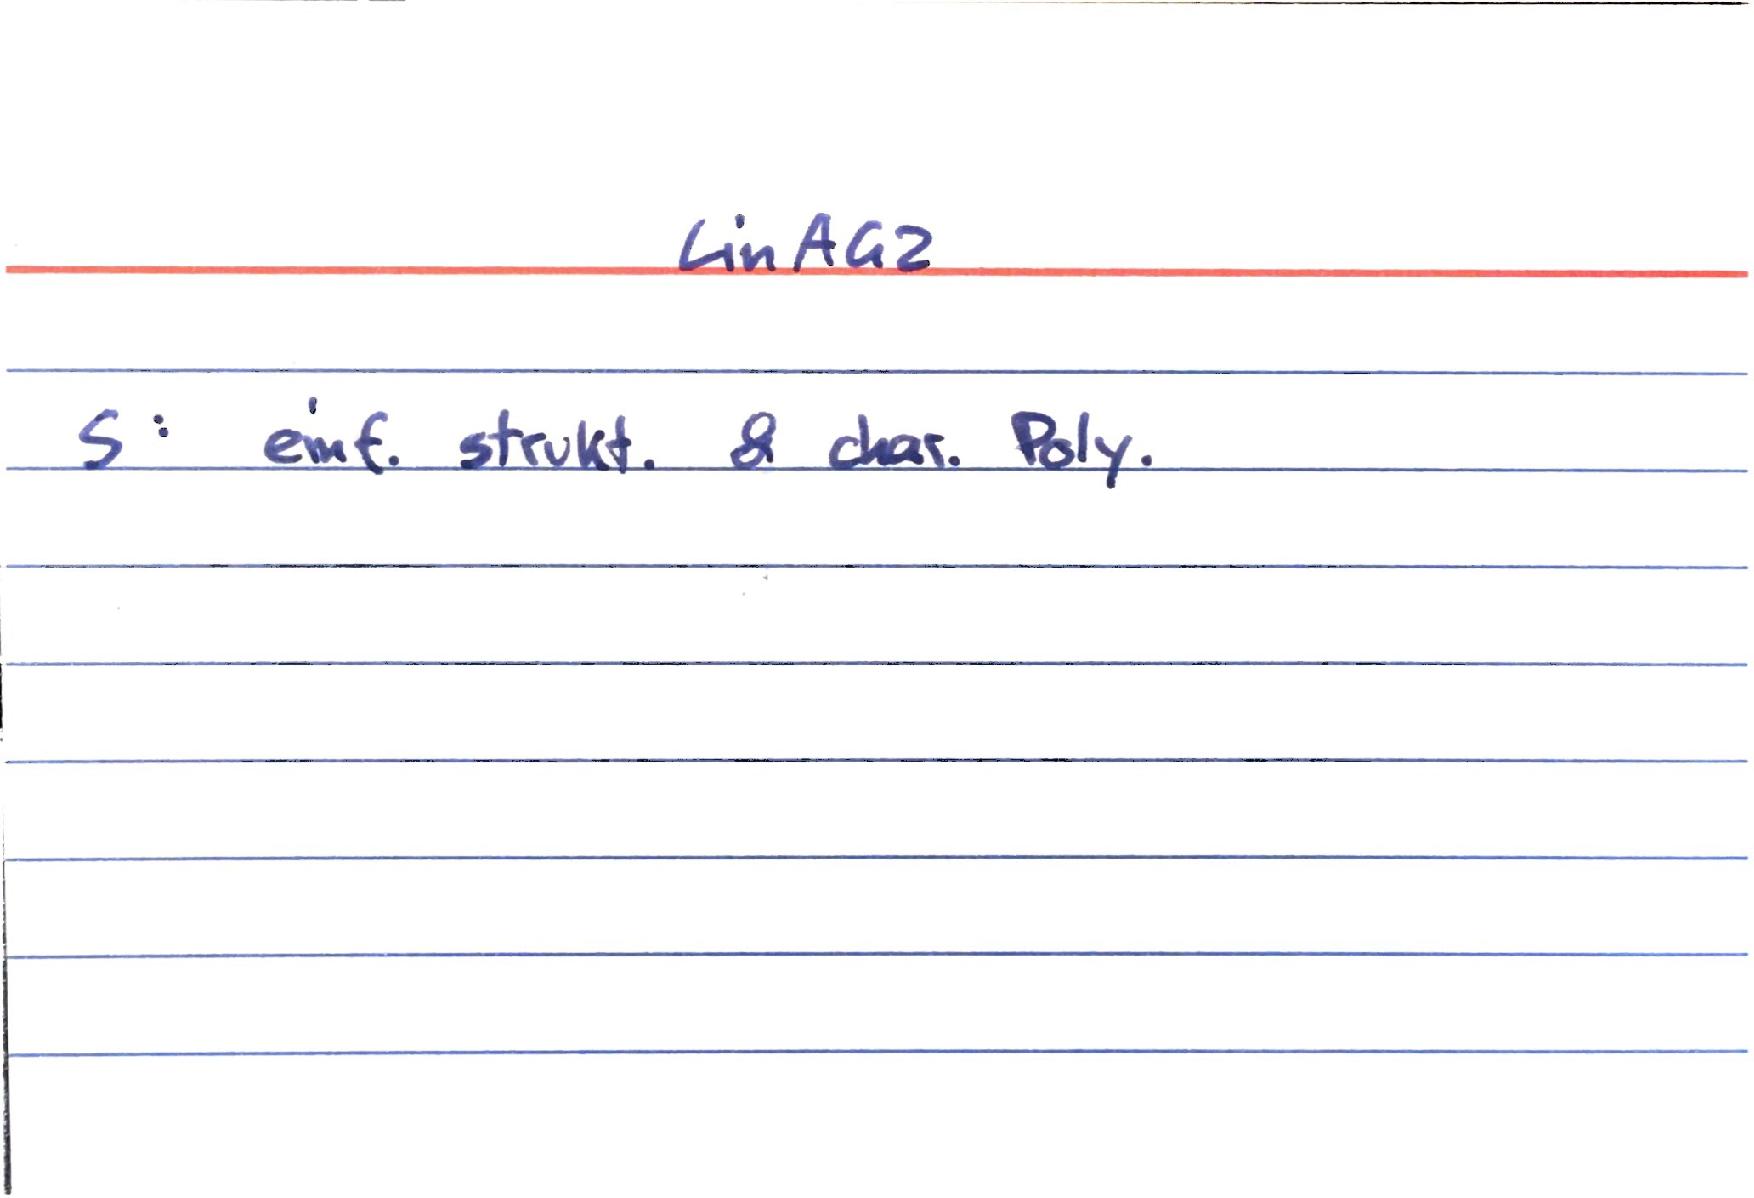 LinAG2
S: einf. strukt. & char. Poly.